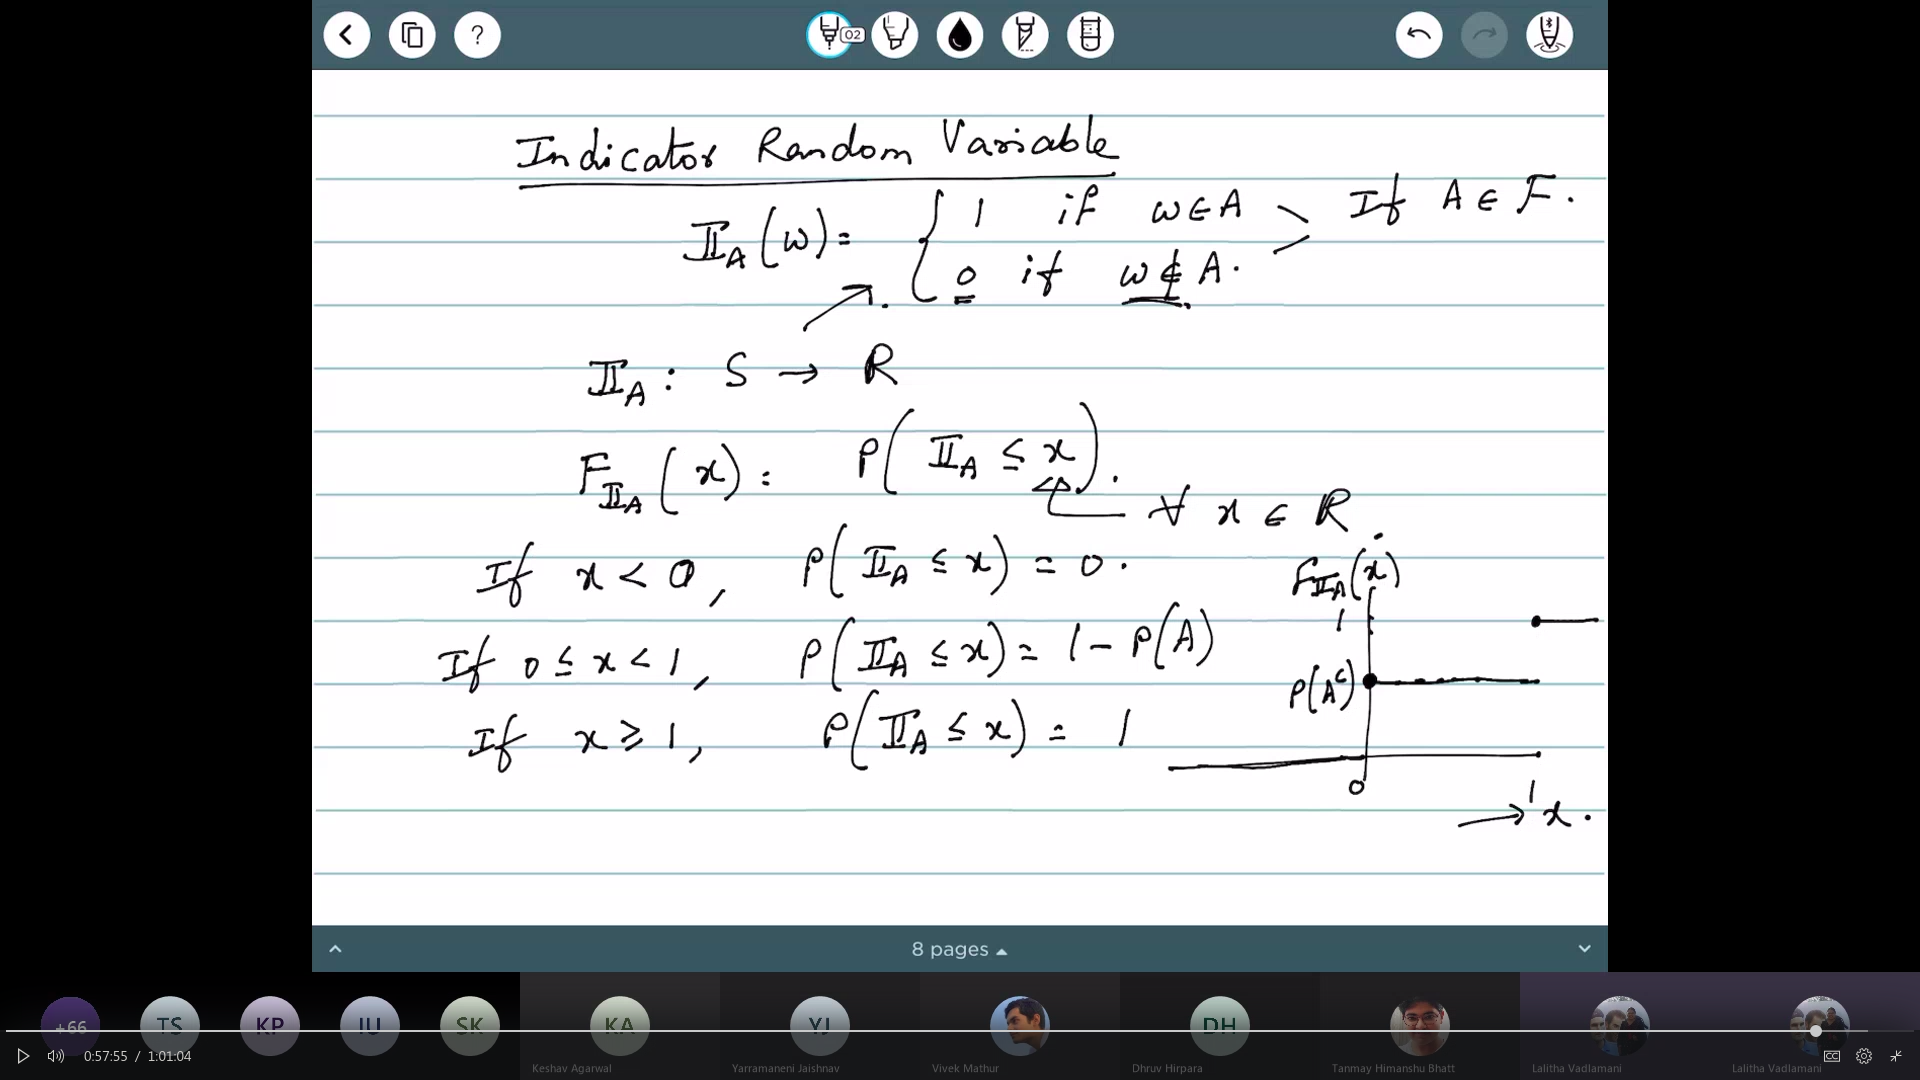 ?
02
Indicator Random Variable
𝕀_A(ω) = { 1 if ω ∈ A > If A ∈ F.
0 if ω ∉ A.
𝕀_A : S → ℝ
F_𝕀_A(x) = P(𝕀_A ≤ x).
∀ x ∈ ℝ.
If x < 0, P(𝕀_A ≤ x) = 0.
If 0 ≤ x < 1, P(𝕀_A ≤ x) = 1 - P(A)
If x ≥ 1, P(𝕀_A ≤ x) = 1
F_𝕀_A(x)
1
P(A^c)
0
1
→ x.
8 pages
+66 TS KP IU SK KA YJ DH
0:57:55 / 1:01:04
CC
Keshav Agarwal Yarramaneni Jaishnav Vivek Mathur Dhruv Hirpara Tanmay Himanshu Bhatt Lalitha Vadlamani Lalitha Vadlamani